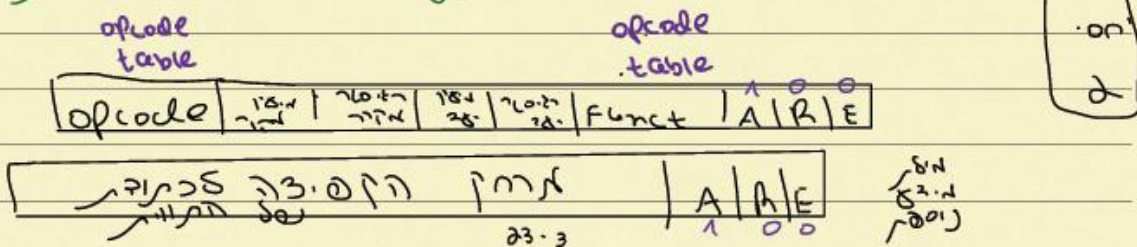 opcode opcode
table .table
1 0 0
opcode | מיעון מקור | רגיסטר מקור | מיעון יעד | רגיסטר יעד | Funct | A | R | E
מרחק הקפיצה לכתובת | A | R | E
של התווית
23-3 1 0 0
מילת
מידע
נוספת